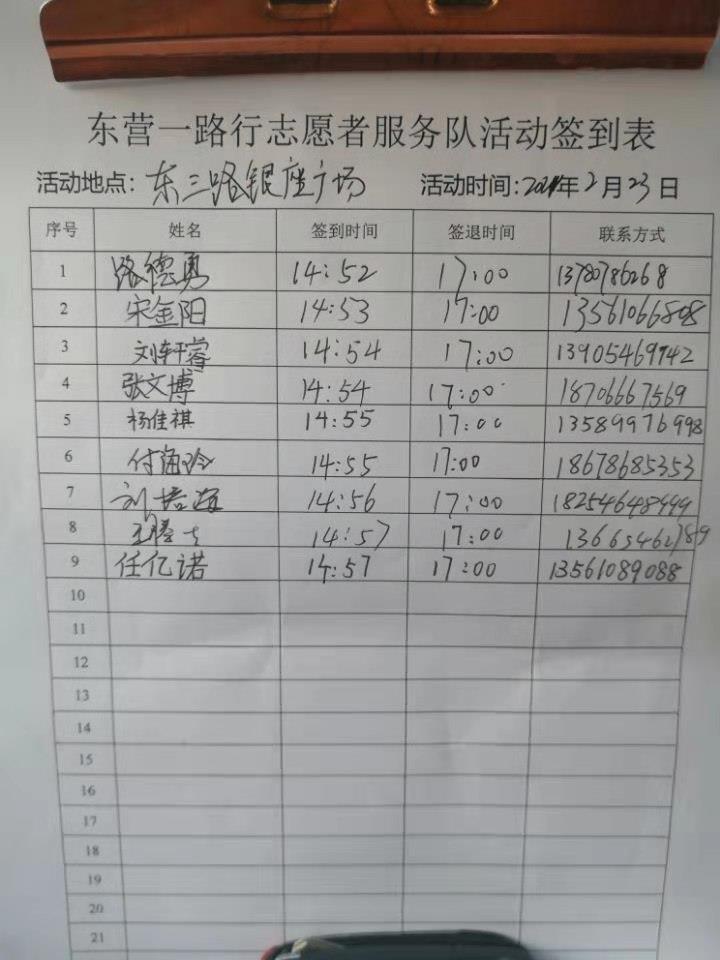 东营一路行志愿者服务队活动签到表
活动地点：东三路银座广场 活动时间：2021年2月23日
序号 姓名 签到时间 签退时间 联系方式
1 路德勇 14:52 17:00 13780786268
2 宋金阳 14:53 17:00 13561066808
3 刘轩睿 14:54 17:00 13905469942
4 张文博 14:54 17:00 18706667569
5 杨佳祺 14:55 17:00 13589976998
6 付海玲 14:55 17:00 18678685353
7 刘培海 14:56 17:00 18254648999
8 14:57 17:00 13665462789
9 任亿诺 14:57 17:00 13561089088
10
11
12
13
14
15
16
17
18
19
20
21